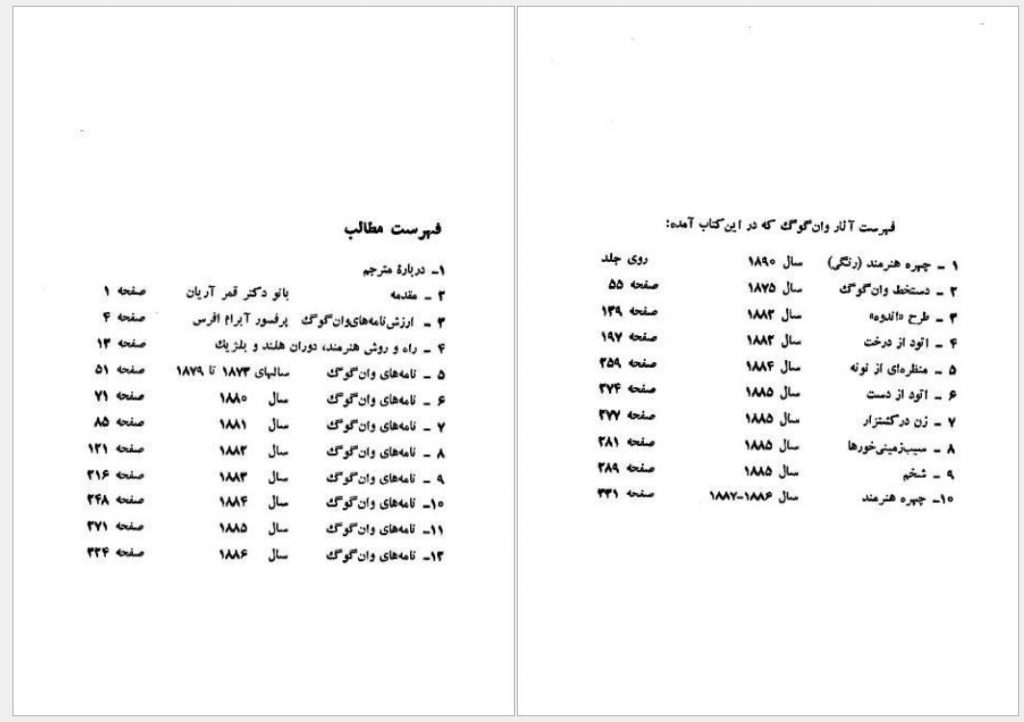 فهرست آثار وان‌گوگ که در این کتاب آمده:
۱ - چهره هنرمند (رنگی) سال ۱۸۹۰ روی جلد
۲ - دستخط وان‌گوگ سال ۱۸۷۵ صفحه ۵۵
۳ - طرح «اندوه» سال ۱۸۸۲ صفحه ۱۳۹
۴ - اتود از درخت سال ۱۸۸۲ صفحه ۱۹۷
۵ - منظره‌ای از نونه سال ۱۸۸۴ صفحه ۲۵۹
۶ - اتود از دست سال ۱۸۸۵ صفحه ۲۷۴
۷ - زن در کشتزار سال ۱۸۸۵ صفحه ۲۷۷
۸ - سیب‌زمینی‌خورها سال ۱۸۸۵ صفحه ۲۸۱
۹ - شخم سال ۱۸۸۵ صفحه ۲۸۹
۱۰- چهره هنرمند سال ۱۸۸۶-۱۸۸۷ صفحه ۳۳۱
فهرست مطالب
۱- دربارهٔ مترجم
۲ - مقدمه بانو دکتر قمر آریان صفحه ۱
۳ - ارزش نامه‌های وان‌گوگ پرفسور آبرام افرس صفحه ۴
۴ - راه و روش هنرمند، دوران هلند و بلژیک صفحه ۱۳
۵ - نامه‌های وان‌گوگ سالهای ۱۸۷۳ تا ۱۸۷۹ صفحه ۵۱
۶ - نامه‌های وان‌گوگ سال ۱۸۸۰ صفحه ۷۱
۷ - نامه‌های وان‌گوگ سال ۱۸۸۱ صفحه ۸۵
۸ - نامه‌های وان‌گوگ سال ۱۸۸۲ صفحه ۱۲۱
۹ - نامه‌های وان‌گوگ سال ۱۸۸۳ صفحه ۲۱۶
۱۰- نامه‌های وان‌گوگ سال ۱۸۸۴ صفحه ۲۴۸
۱۱- نامه‌های وان‌گوگ سال ۱۸۸۵ صفحه ۲۷۱
۱۲- نامه‌های وان‌گوگ سال ۱۸۸۶ صفحه ۳۲۴